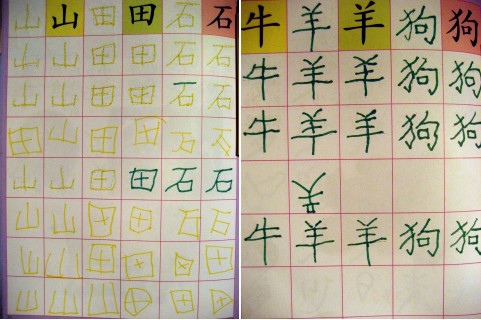 山 山 田 田 石 石
山 山 田 田 石 石
山 山 田 田 石 石
田 山 田 田 石 石
山 山 田 田 石 石
山 山 田 田 石 石
山 山 田 田 田 田
山 山 山 田 田 田
牛 羊 羊 狗 狗
牛 羊 羊 狗 狗
牛 羊 羊 狗 狗
牛 羊 羊 狗 狗